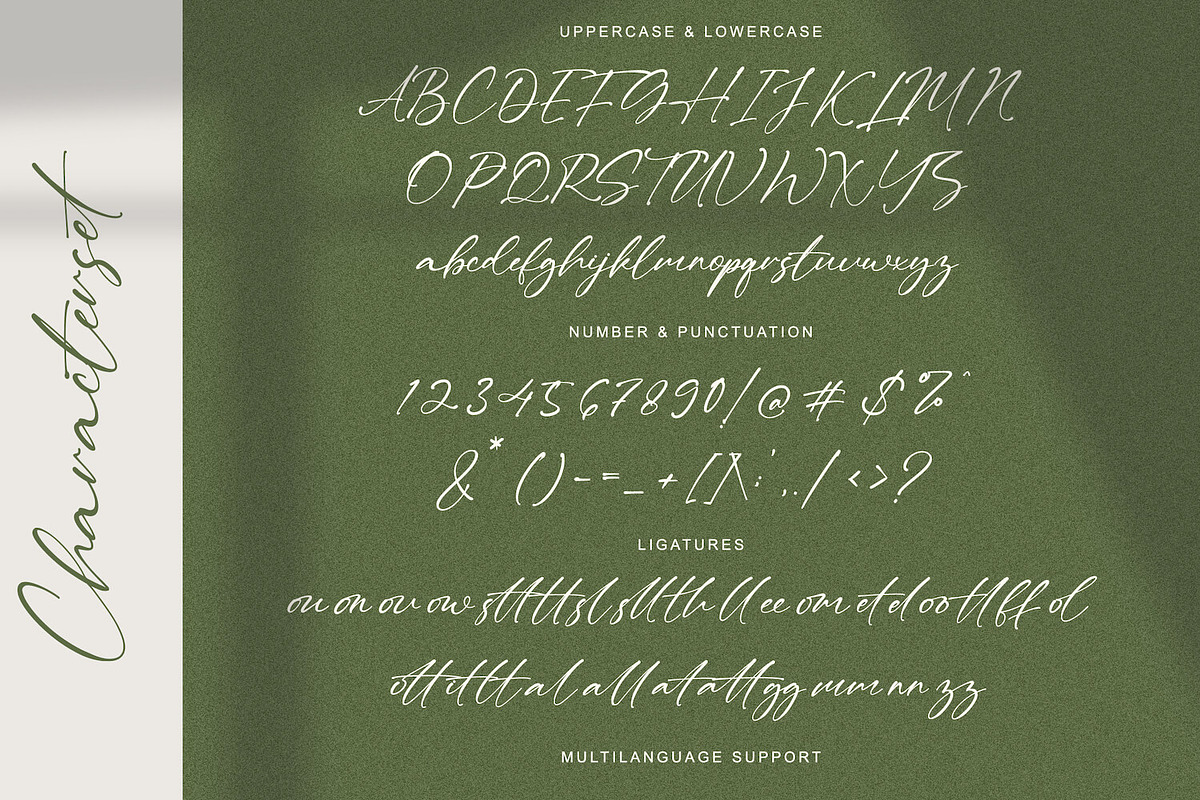 Characterset
UPPERCASE & LOWERCASE
ABCDEFGHIJKLMN
OPQRSTUVWXYZ
abcdefghijklmnopqrstuvwxyz
NUMBER & PUNCTUATION
1234567890!@#$%^
&*()-=_+[]\:;',./<>?
LIGATURES
ou on or ow st tt sl th ll ee om et el oo tl ff ol
ott it lt al all at att gg mm nn zz
MULTILANGUAGE SUPPORT